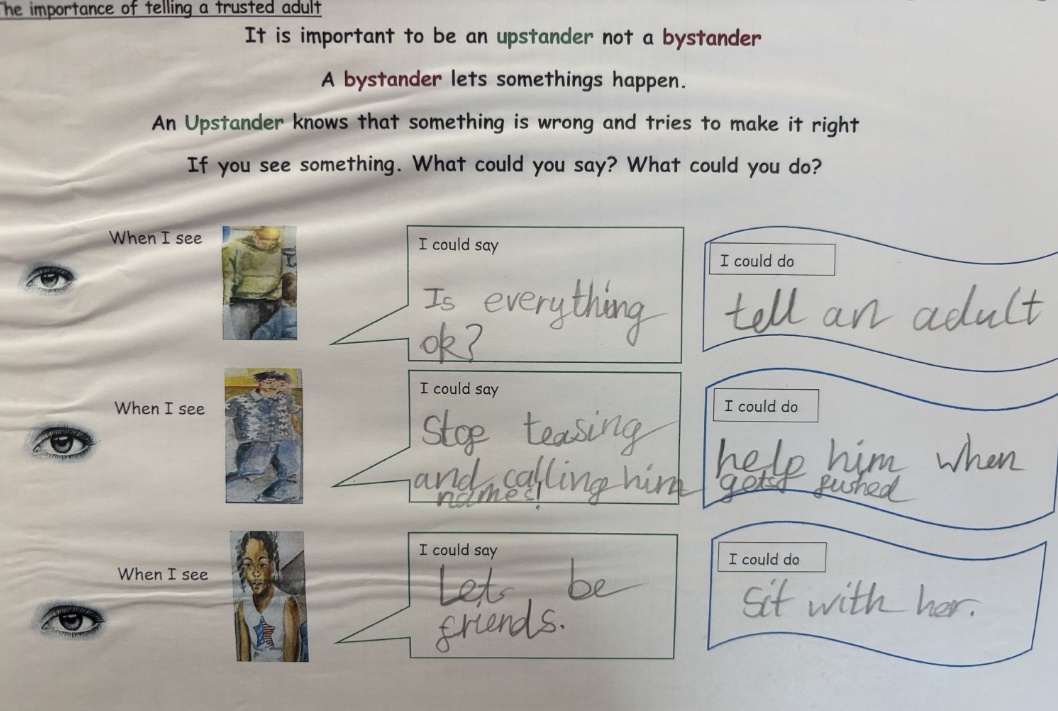 The importance of telling a trusted adult
It is important to be an upstander not a bystander
A bystander lets somethings happen.
An Upstander knows that something is wrong and tries to make it right
If you see something. What could you say? What could you do?
When I see
I could say
Is everything
ok?
I could do
tell an adult
When I see
I could say
Stop teasing
and calling him
names!
I could do
help him when
gets pushed
When I see
I could say
Lets be
friends.
I could do
Sit with her.